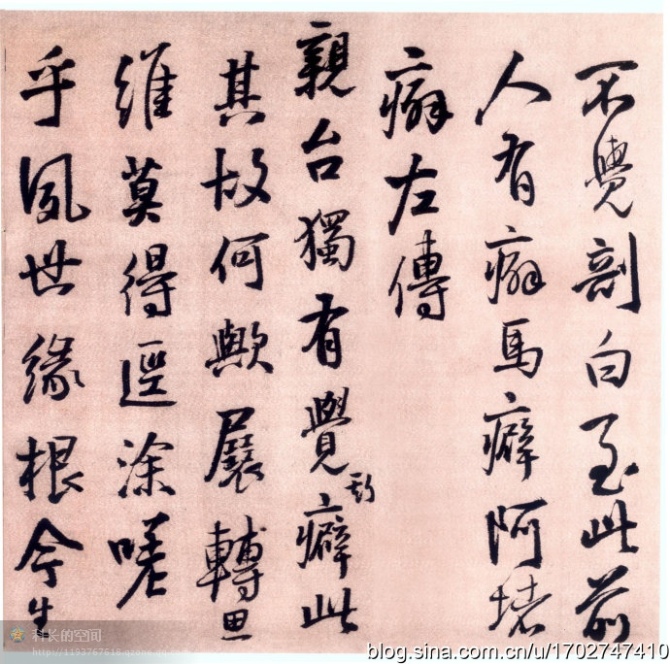 不覺剖白至此前
人有癖馬癖阿堵
癖左傳
親台獨有覺癖此
其故何歟展轉思
維莫得逕涂嗟
乎夙世緣根今生
科长的空间
blog.sina.com.cn/u/1702747410